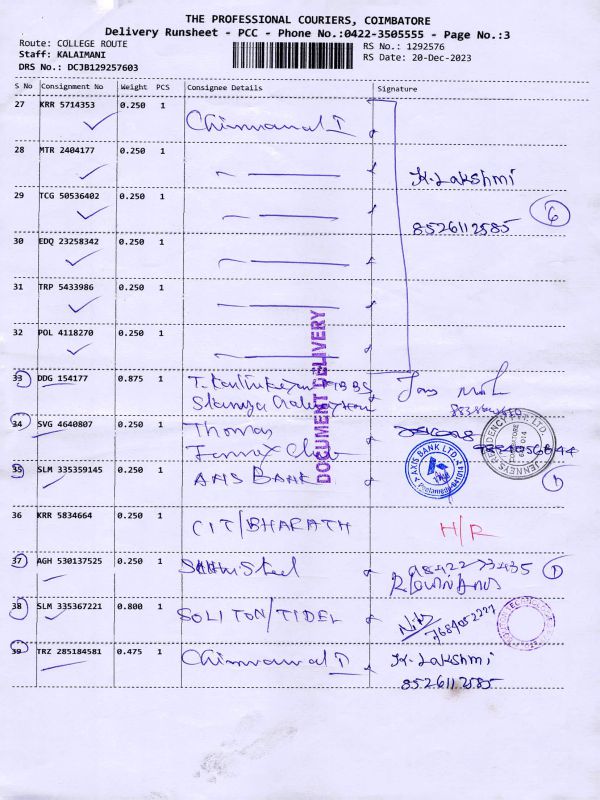 THE PROFESSIONAL COURIERS, COIMBATORE
Delivery Runsheet - PCC - Phone No.:0422-3505555 - Page No.:3
Route: COLLEGE ROUTE RS No.: 1292576
Staff: KALAIMANI RS Date: 20-Dec-2023
DRS No.: DCJB129257603
S No Consignment No Weight PCS Consignee Details Signature
27 KRR 5714353 0.250 1
28 MTR 2404177 0.250 1 K. Lakshmi
29 TCG 50536402 0.250 1 8526112585 6
30 EDQ 23258342 0.250 1
31 TRP 5433986 0.250 1
32 POL 4118270 0.250 1
DOCUMENT DELIVERY
33 DDG 154177 0.875 1
34 SVG 4640807 0.250 1 Thomas
35 SLM 335359145 0.250 1 AXIS BANK AXIS BANK LTD. 1
36 KRR 5834664 0.250 1 CIT/BHARATH H/R
37 AGH 530137525 0.250 1 Steel 1
38 SLM 335367221 0.800 1 SOLITON/TIDEL
39 TRZ 285184581 0.475 1 K. Lakshmi
8526112585